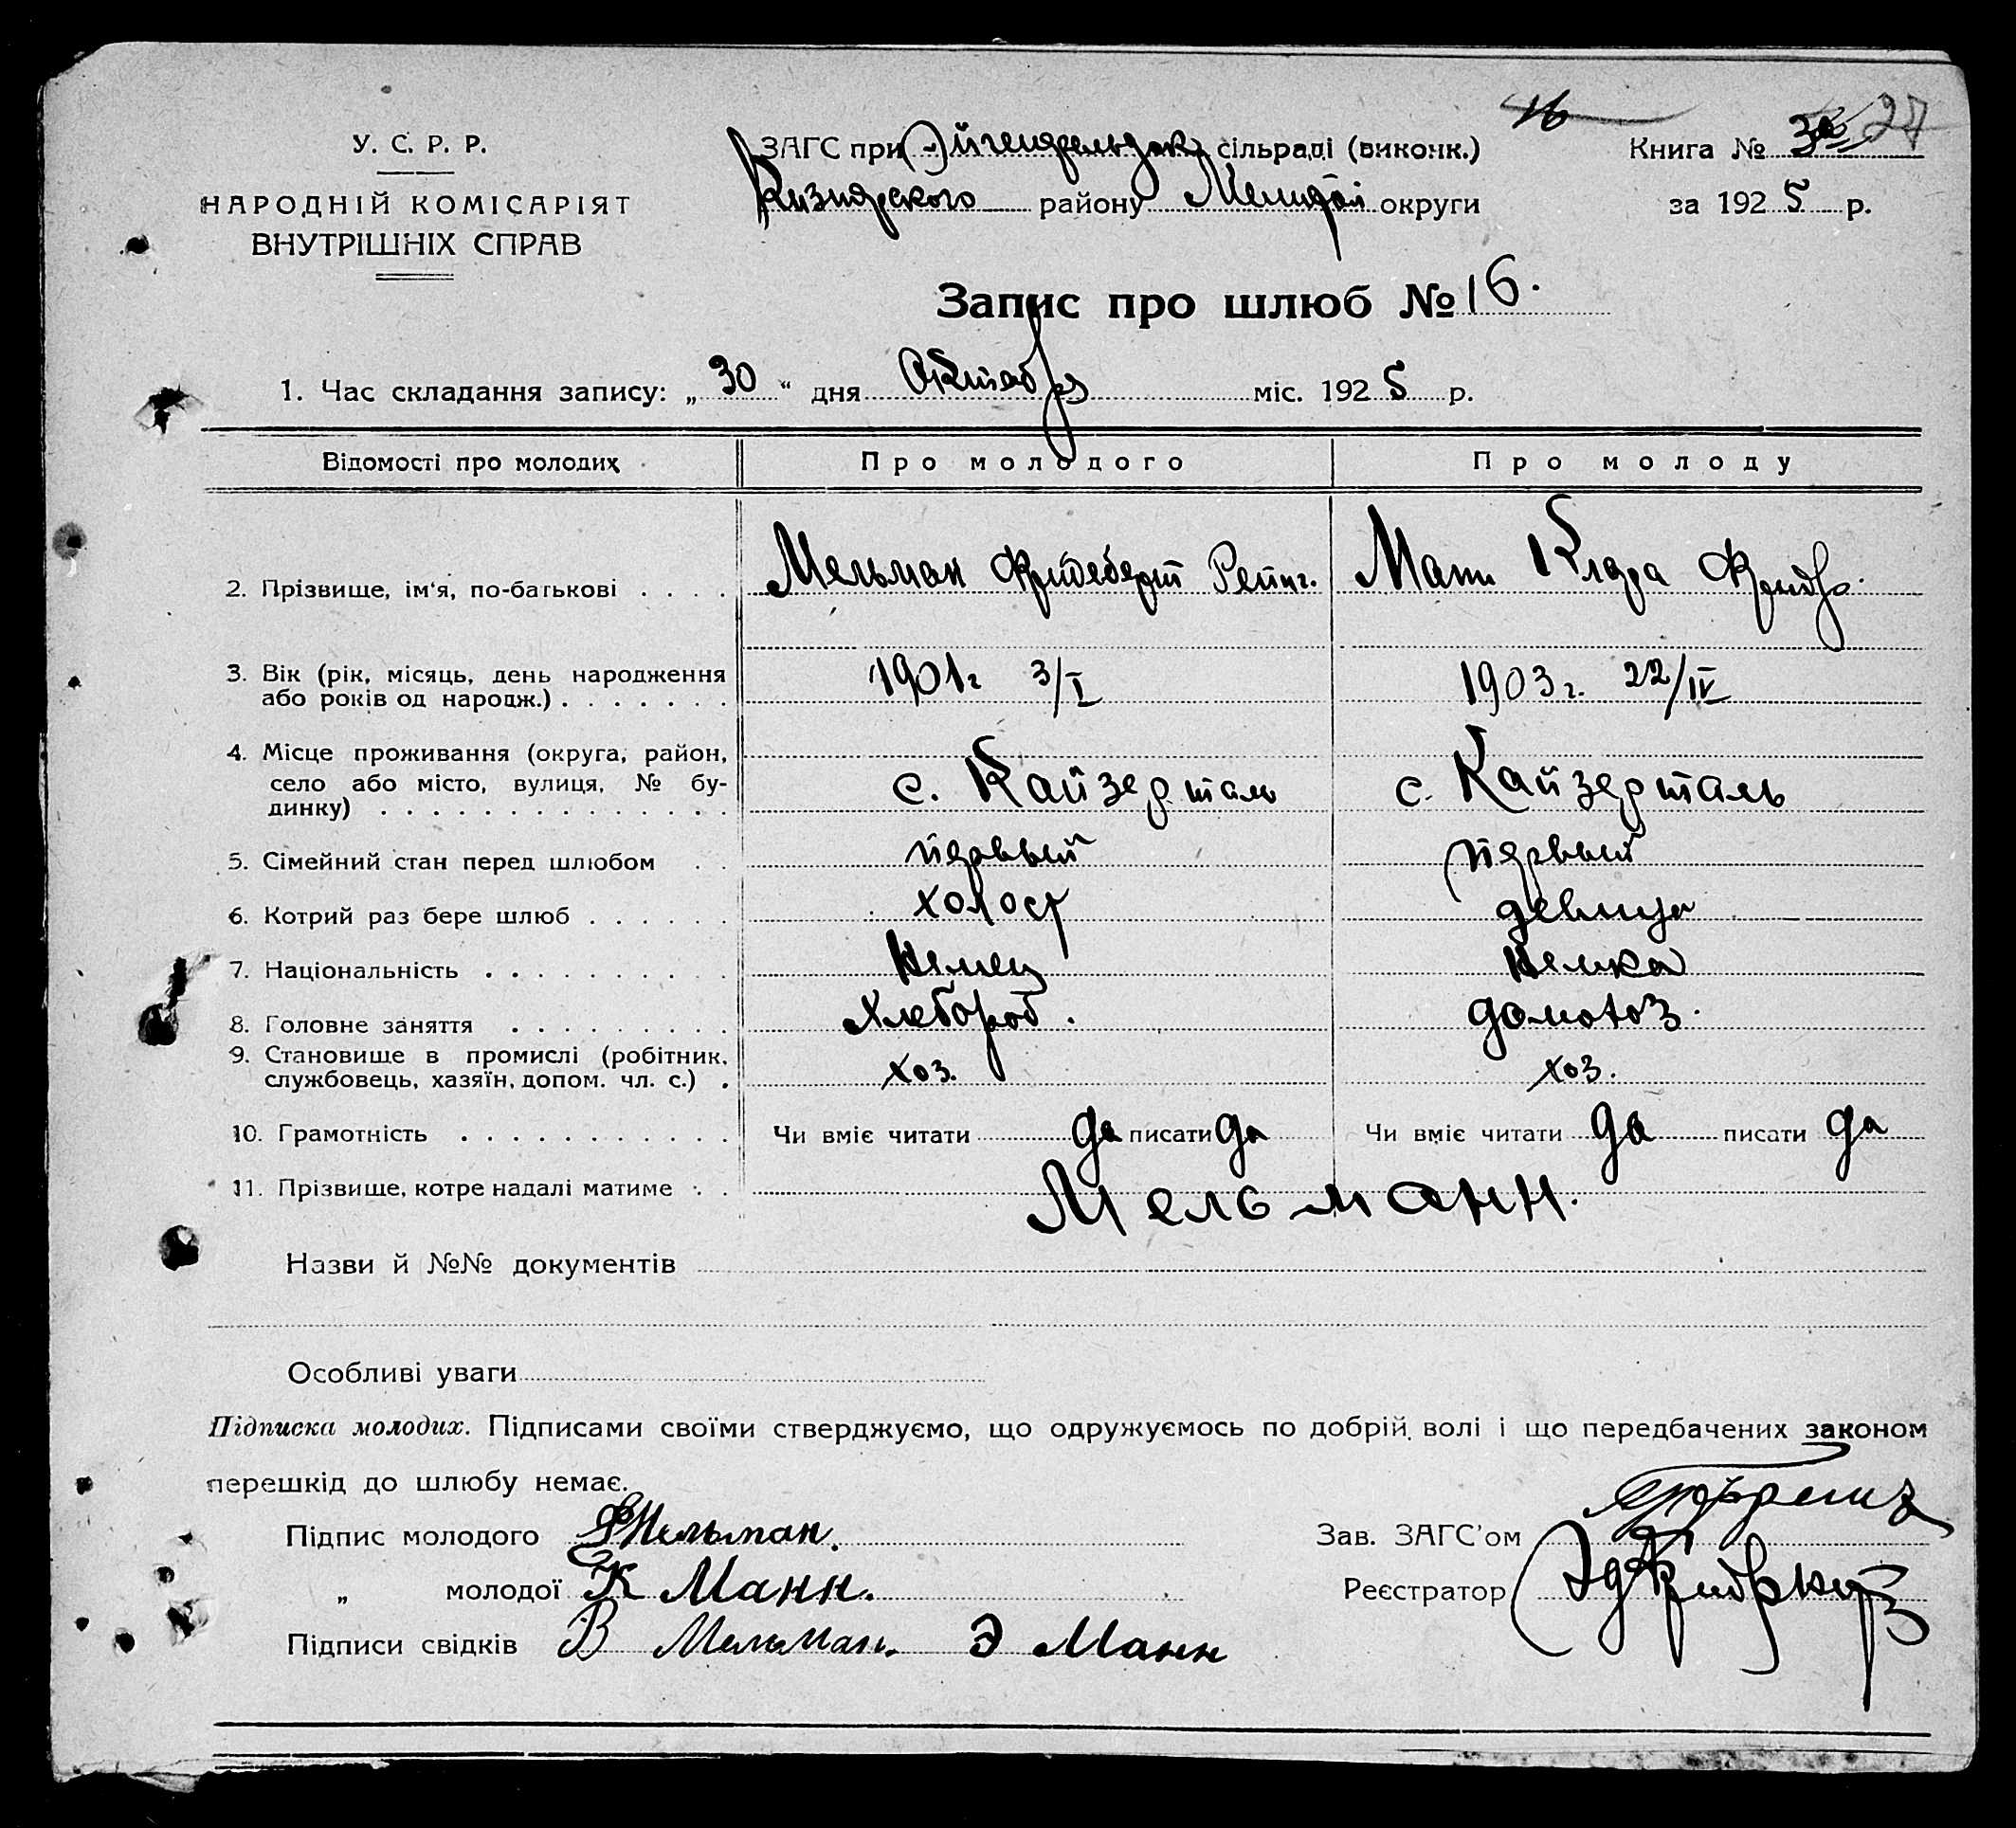 16
У. С. Р. Р.
ЗАГС при Эйгенфельдск сільраді (виконк.)
Книга № 27
НАРОДНІЙ КОМІСАРІЯТ
Кизиярского району Мелитоп округи
за 1925 р.
ВНУТРІШНІХ СПРАВ
Запис про шлюб № 16.
1. Час складання запису: „ 30 “ дня Октября міс. 1925 р.
Відомості про молодих
Про молодого
Про молоду
2. Прізвище, ім'я, по-батькові . . . .
Мельман Фридеберт Рейнг.
Манн Клара Фридр.
3. Вік (рік, місяць, день народження
або років од народж.) . . . . . . .
1901 г 3/I
1903 г. 22/IV
4. Місце проживання (округа, район,
село або місто, вулиця, № бу-
динку) . . . . . . . . . . . . . .
с. Кайзерталь
с. Кайзерталь
5. Сімейний стан перед шлюбом . .
первый
первый
6. Котрий раз бере шлюб . . . . . .
холост
девица
7. Національність . . . . . . . . .
Немец
Немка
8. Головне заняття . . . . . . . . .
Хлебороб.
домохоз.
9. Становище в промислі (робітник,
службовець, хазяїн, допом. чл. с.) .
хоз.
хоз.
10. Грамотність . . . . . . . . . . .
Чи вміє читати да писати да
Чи вміє читати да писати да
11. Прізвище, котре надалі матиме . .
Мельманн.
Назви й №№ документів
Особливі уваги
Підписка молодих. Підписами своїми стверджуємо, що одружуємось по добрій волі і що передбачених законом
перешкід до шлюбу немає.
Підпис молодого Ф Мельман.
Зав. ЗАГС'ом
„ молодої К Манн.
Реєстратор
Підписи свідків В Мельман. Э Манн